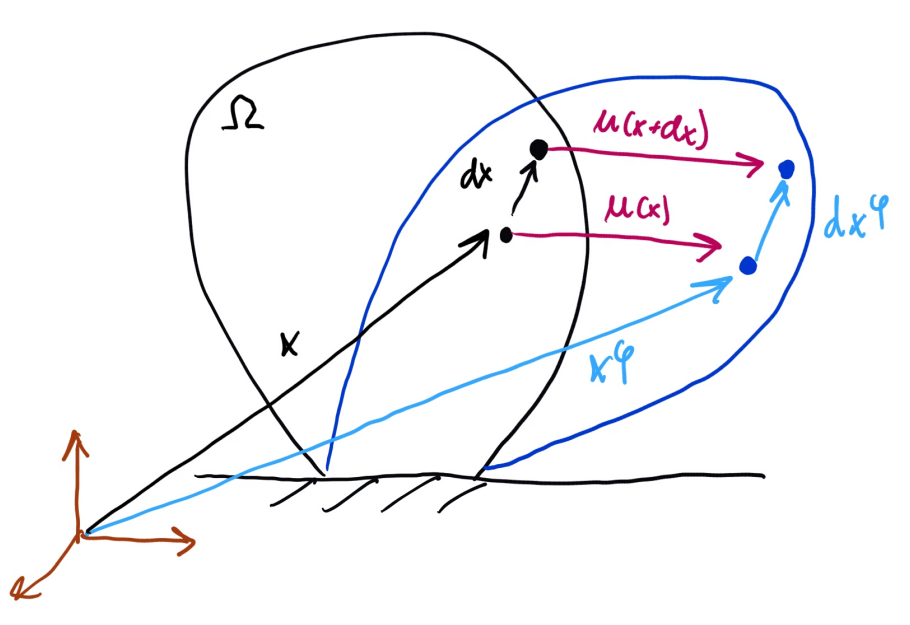 Ω
u(x+dx)
dx
u(x)
dx^φ
x
x^φ